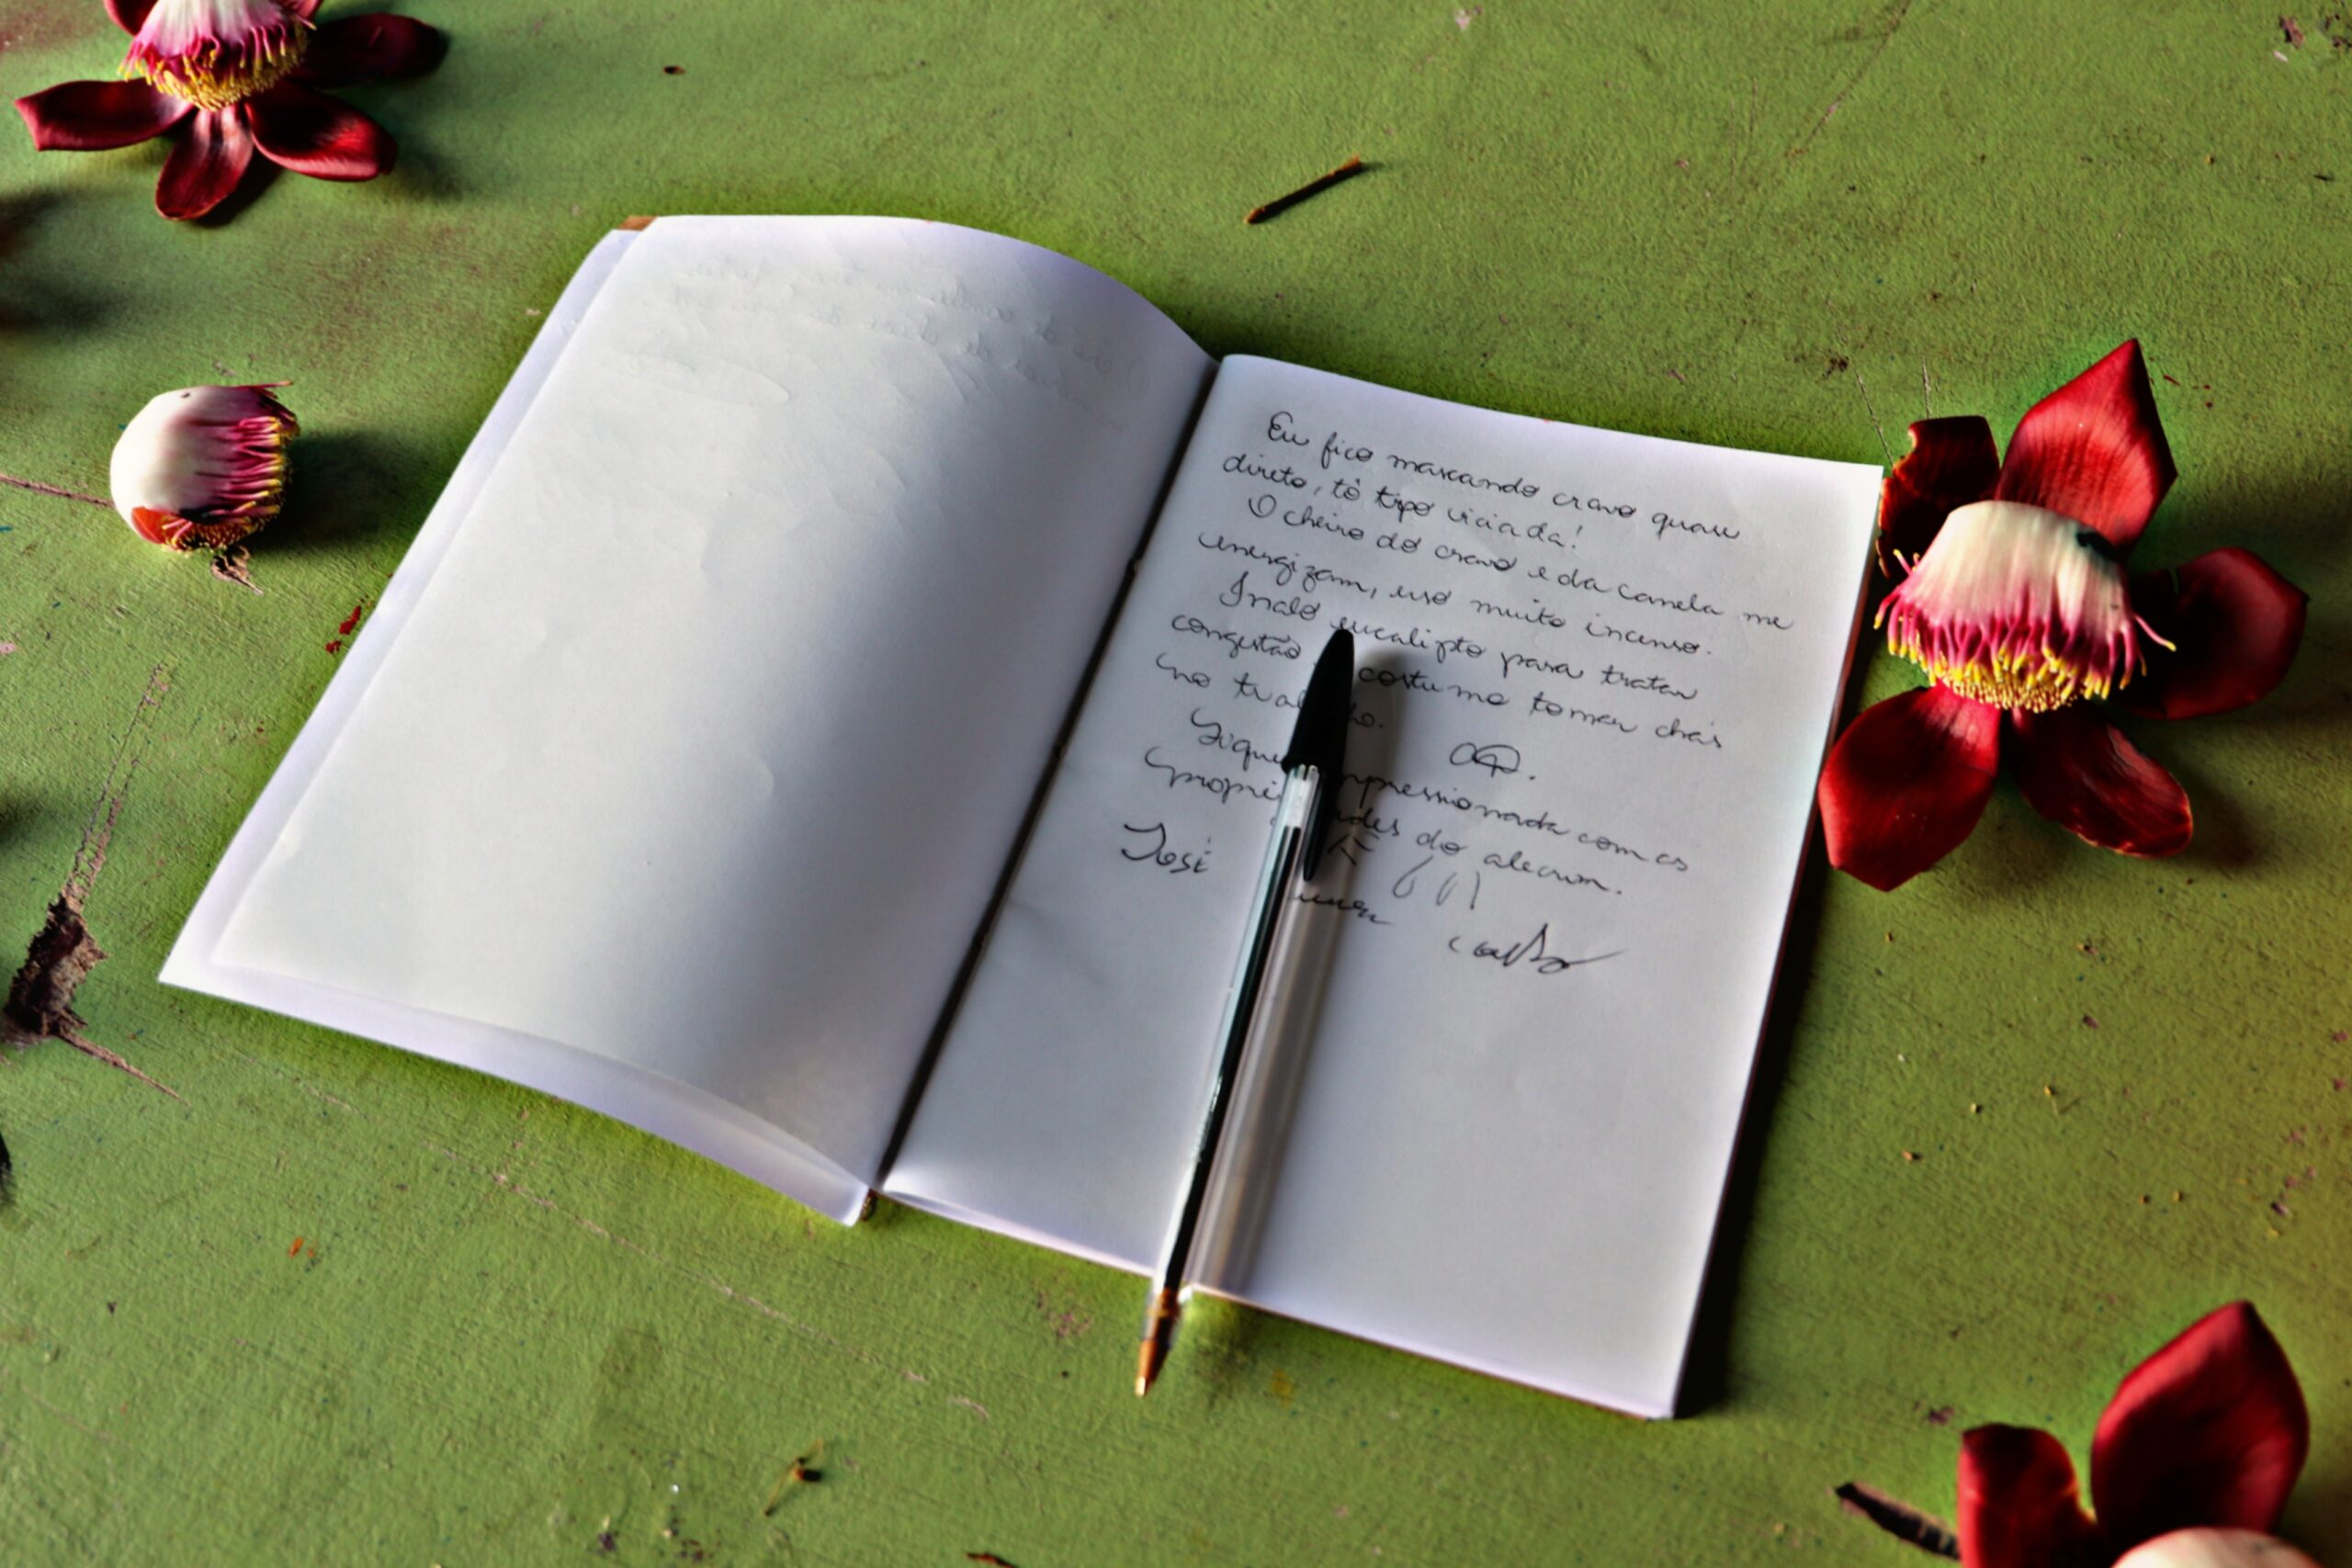 Eu fico mascando cravo quase
direto, tô tipo viciada!
O cheiro do cravo e da canela me
energizam, uso muito incenso.
Inalo eucalipto para tratar
congestão costumo tomar chás
no
Fiquei impressionada com as
propriedades do alecrim.
José